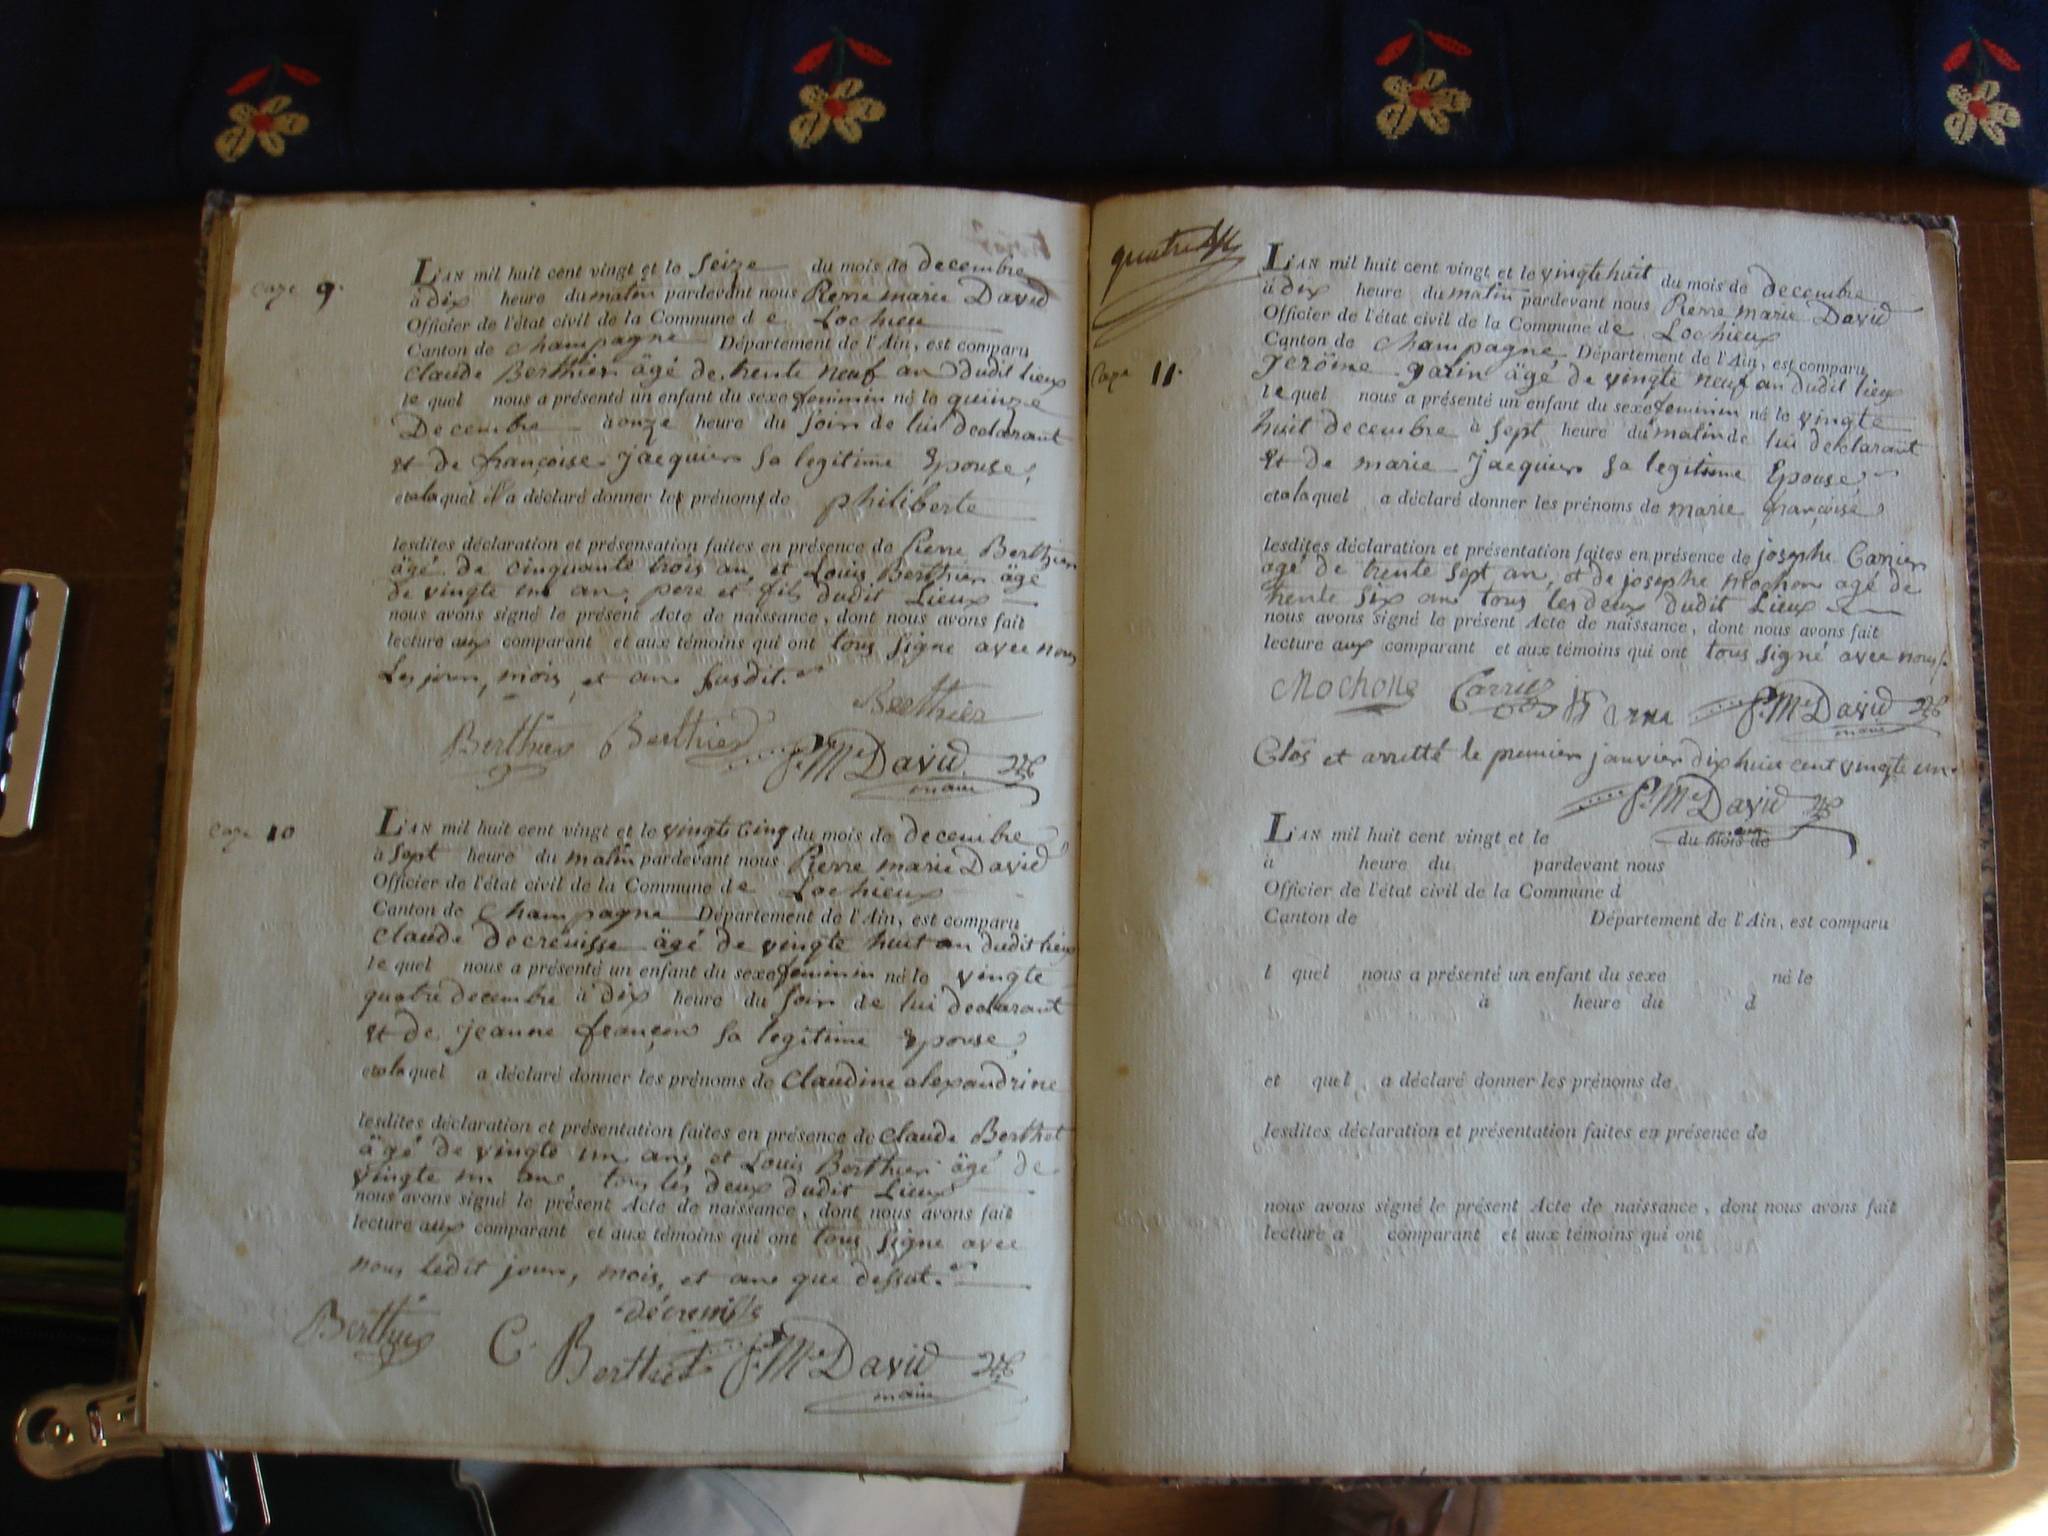 Caze 9.
L'AN mil huit cent vingt et le Seize du mois de decembre
à dix heure du matin pardevant nous Pierre marie David
Officier de l'état civil de la Commune de Lochieu
Canton de champagne Département de l'Ain, est comparu
Claude Berthier âgé de trente neuf an dudit lieux
le quel nous a présenté un enfant du sexe feminin né le quinze
Decembre à onze heure du soir de lui declarant
et de françoise jacquier sa legitime Epouse,
et a la quel il a déclaré donner les prénoms de philiberte
lesdites déclaration et présensation faites en présence de Pierre Berthier
âgé de cinquante trois an, et Louis Berthier âgé
de vingte un an, pere et fils dudit Lieux
nous avons signé le présent Acte de naissance, dont nous avons fait
lecture aux comparant et aux témoins qui ont tous signe avec nous
Les jour, mois, et an susdit.
Berthier
Berthier Berthier P. Me David
maire
Caze 10
L'AN mil huit cent vingt et le vingte cinq du mois de decembre
à sept heure du matin pardevant nous Pierre marie David
Officier de l'état civil de la Commune de Lochieux
Canton de Champagne Département de l'Ain, est comparu
Claude Decreuisse âgé de vingte huit an dudit lieux
le quel nous a présenté un enfant du sexe feminin né le vingte
quatre decembre à dix heure du soir de lui declarant
et de jeanne françon sa legitime Epouse,
et a la quel a déclaré donner les prénoms de Claudine alexandrine
lesdites déclaration et présentation faites en présence de Claude Berthet
âgé de vingte un an, et Louis Berthier âgé de
vingte un an, tous les deux dudit Lieux
nous avons signé le présent Acte de naissance, dont nous avons fait
lecture aux comparant et aux témoins qui ont tous signe avec
nous ledit jour, mois, et an que dessut.
décreuisse
Berthier C. Berthet P. Me David
maire
quatre
Caze 11.
L'AN mil huit cent vingt et le vingte huit du mois de decembre
à dix heure du matin pardevant nous Pierre marie David
Officier de l'état civil de la Commune de Lochieux
Canton de champagne Département de l'Ain, est comparu
jerôme garin âgé de vingte neuf an dudit lieux
le quel nous a présenté un enfant du sexe feminin né le vingte
huit decembre à sept heure du matin de lui declarant
et de marie jacquier sa legitime Epouse
et a la quel a déclaré donner les prénoms de marie françoise
lesdites déclaration et présentation faites en présence de josephe Carrier
âgé de trente sept an, et de josephe mochon agé de
trente six an tous les deux dudit Lieux
nous avons signé le présent Acte de naissance, dont nous avons fait
lecture aux comparant et aux témoins qui ont tous signé avec nous.
Mochon Carrier P. Me David
maire
Clos et arretté le premier janvier dix huit cent vingte un.
P. Me David
L'AN mil huit cent vingt et le du mois de
à heure du pardevant nous
Officier de l'état civil de la Commune d
Canton de Département de l'Ain, est comparu
l quel nous a présenté un enfant du sexe né le
à heure du d
et quel a déclaré donner les prénoms de
lesdites déclaration et présentation faites en présence de
nous avons signé le présent Acte de naissance, dont nous avons fait
lecture a comparant et aux témoins qui ont